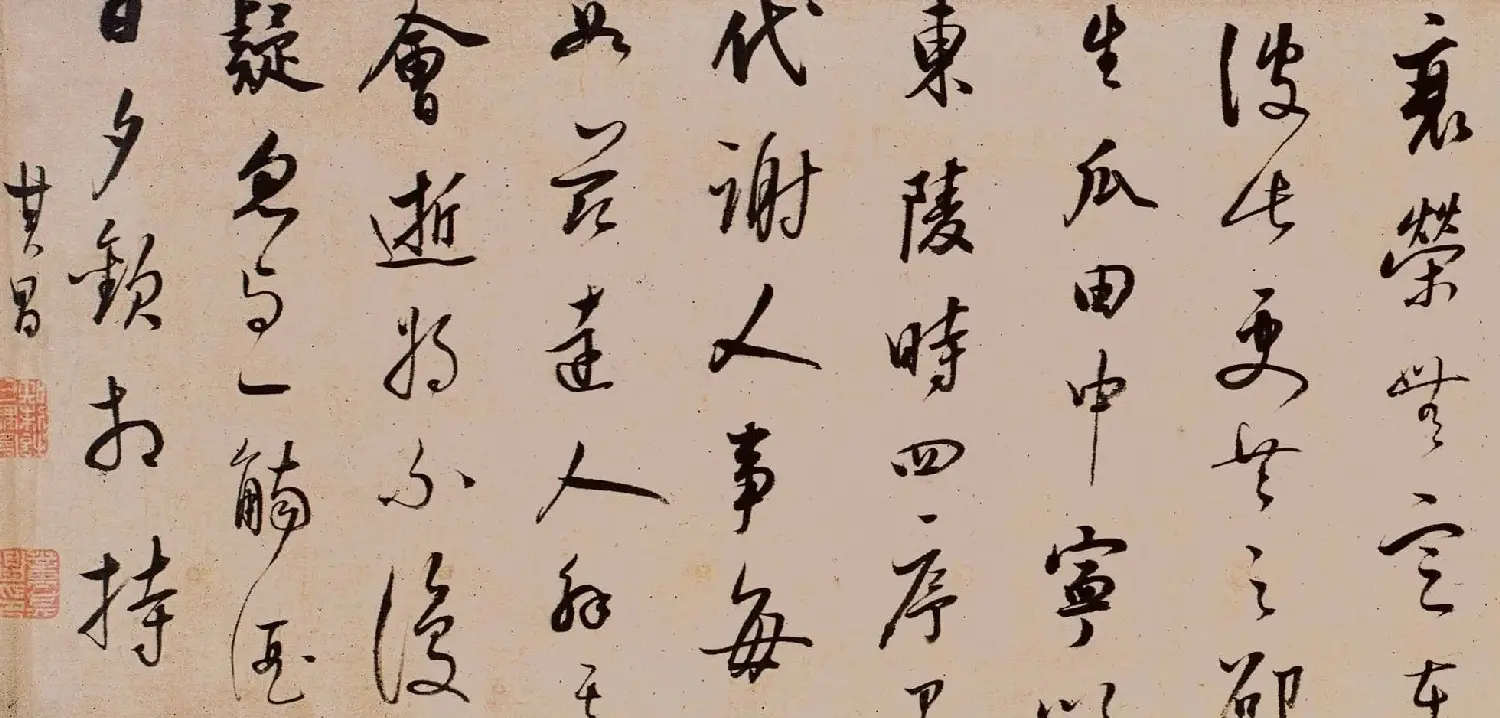 衰榮無定在
彼此更共之邵
生瓜田中寧似
東陵時四序
代謝人事每
如茲達人解其
會逝將不復
疑忽與一觴酒
日夕歡相持
其昌